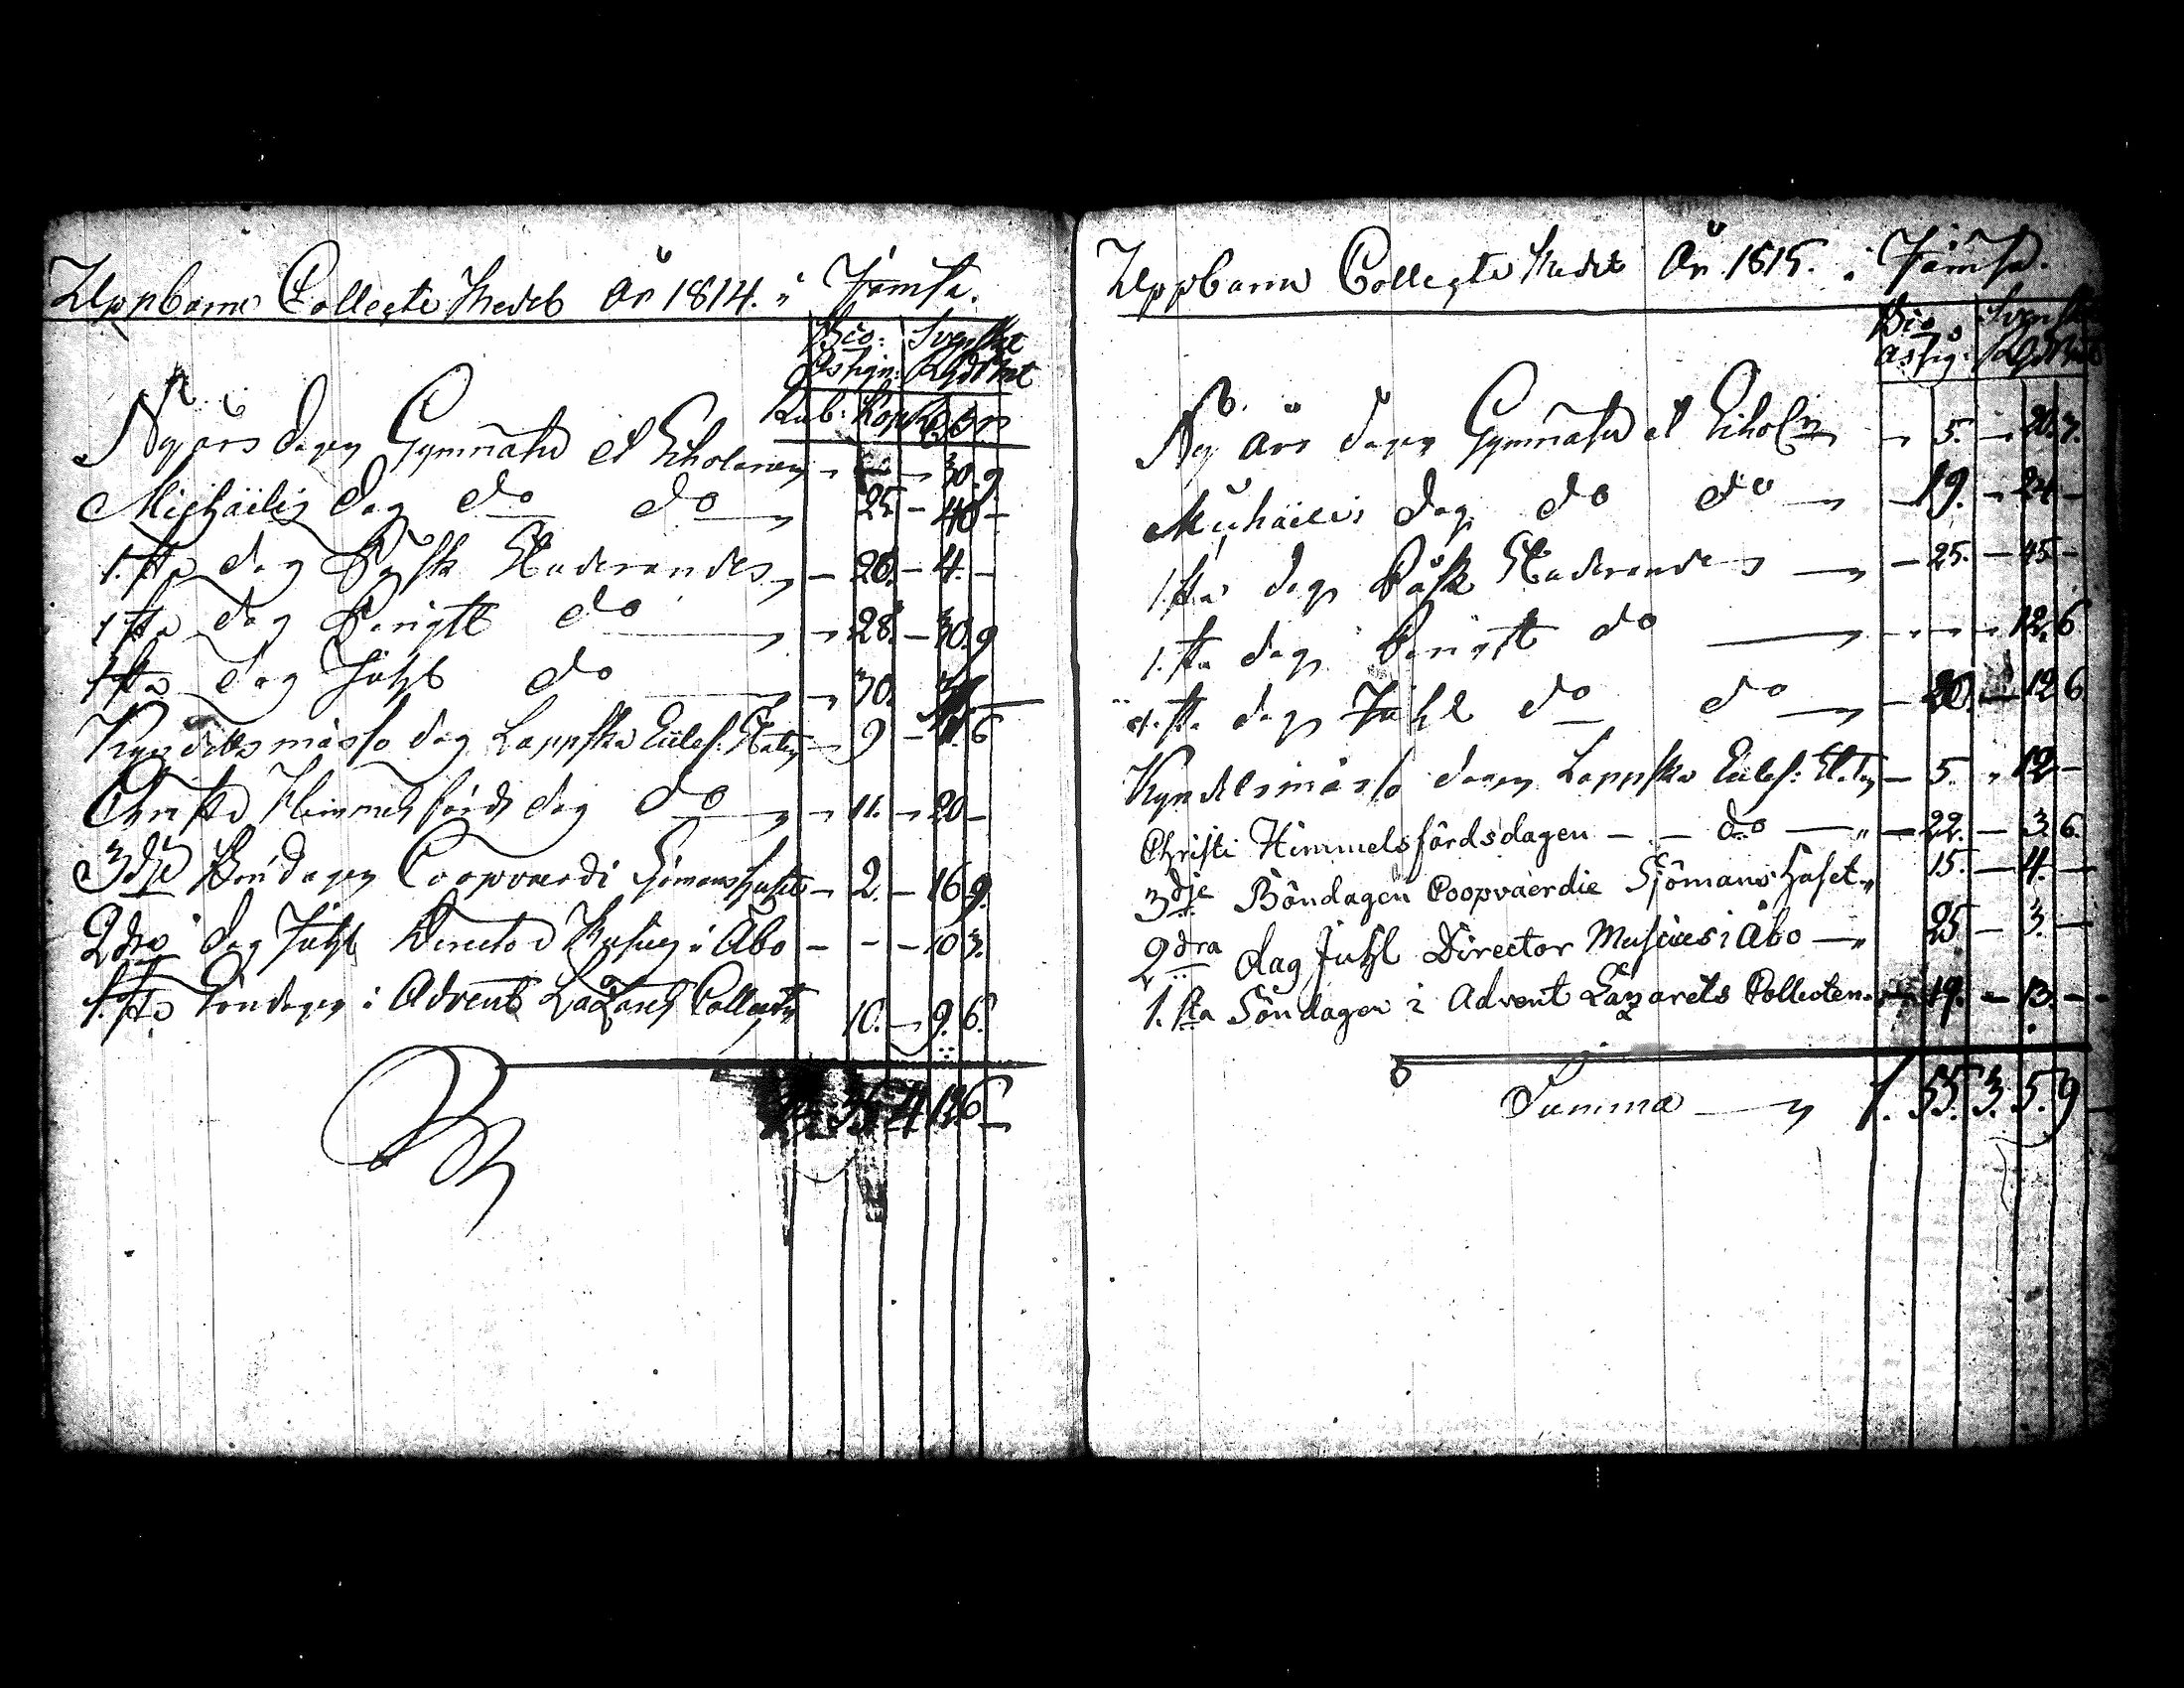 Uppburne Collecte Medel År 1814. i Jämsä.
Bco: Svenskt
Assign: Rgdsmt
Rub: Kop:
Nyårs dagen Gymnasii et Scholarum - - 30. 9
Michäilis dag do do 25 - 40 -
1.sta dag Påsk Studerandes - 20. - 4. -
1sta dag Pingst do - 28. - 30. 9
1sta dag Juhl do - 30.
Kyndelsmässo dag Lappska Eccles: Staten - 9 - 6
Christi Himmelsfärds dag do - 11. - 20 -
3dje Böndagen Coopvaerdi Sjömanshuset - 2. - 16 9.
2dra dag Juhl Director Musices i Åbo - - - 10 3.
1.sta Söndagen i Advent Lazarets Collecten 10. - 9. 6.
Uppburne Collecte Medel År 1815. i Jämsä.
Bco Svenskt
assig: Rgdsmt
Ny års dagen Gymnasii et Schol - 5. - 20. 7.
Michäilis dag do do - 19. - 24 -
1.sta dag Påsk Studerandes - 25. - 45 -
1.sta dag Pingst do - - - 12. 6
1.sta dag Juhl do do - 20. - 12 6
Kyndelsmässo dagen Lappska Eccles: Staten - 5. - 12 -
Christi Himmelsfärdsdagen - - do - 22. - 3. 6.
3dje Böndagen Coopvaerdie Sjömans Huset 15. - 4. -
2dra dag Juhl Director Musices i Åbo - 25 - 3. -
1.sta Söndagen i Advent Lazarets Collecten. 19. - 13. -
Summa - 1. 55. 3. 5. 9